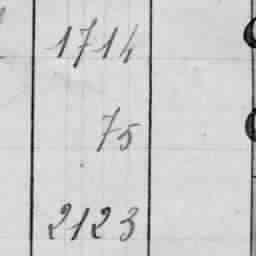 1714
75
2123